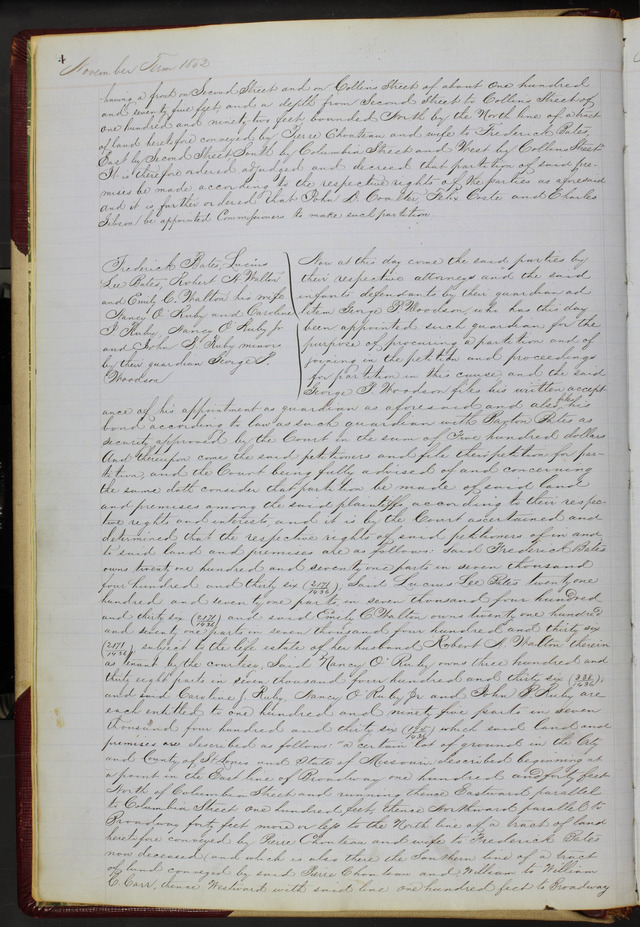 4
November Term 1862
having a front on Second Street and on Collins Street of about one hundred
and seventy five feet and a depth from Second Street to Collins Street of
one hundred and ninety two feet bounded North by the North line of a tract
of land heretofore conveyed by Pierre Chouteau and wife to Frederick Bates
East by Second Street South by Columbia Street and West by Collins Street
It is therefore ordered adjudged and decreed that partition of said pre-
mises be made according to the respective rights of the parties as aforesaid
and it is further ordered that John D. Coalter, Felix Coste and Charles
Gibson be appointed Commissioners to make such partition
Frederick Bates, Lucius
Lee Bates, Robert A. Walton
and Emily C. Walton his wife
Nancy O Ruby and Caroline
J. Ruby, Nancy O Ruby Jr
and John P. Ruby minors
by their guardian George P.
Woodson
Now at this day come the said parties by
their respective attorneys and the said
infants defendants by their guardian ad
litem George P Woodson, who has this day
been appointed such guardian for the
purpose of procuring a partition and of
joining in the petition and proceedings
for partition in this cause and the said
George P. Woodson files his written accept-
ance of his appointment as guardian as aforesaid and also files his
bond according to law as such guardian with Barton Bates as
security approved by the Court in the sum of Five hundred dollars
And thereupon come the said petitioners and file their petition for par-
tition, and the Court being fully advised of and concerning
the same doth consider that partition be made of said land
and premises among the said plaintiffs, according to their respec-
tive rights and interests, and it is by the Court ascertained and
determined that the respective rights of said petitioners of in and
to said land and premises are as follows: Said Frederick Bates
owns twenty one hundred and seventy one parts in seven thousand
four hundred and thirty six (2171/7436) Said Lucius Lee Bates twenty one
hundred and seventy one parts in seven thousand four hundred
and thirty six (2171/7436) and said Emily C Walton owns twenty one hundred
and seventy one parts in seven thousand four hundred and thirty six
(2171/7436), subject to the life estate of her husband Robert A. Walton therein
as tenant by the courtesy, Said Nancy O' Ruby owns three hundred and
thirty eight parts in seven thousand four hundred and thirty six (338/7436);
and said Caroline J. Ruby, Nancy O Ruby Jr and John P Ruby are
each entitled to one hundred and ninety five parts in seven
thousand four hundred and thirty six (195/7436) which said land and
premises are described as follows: "a certain lot of ground in the City
and County of St Louis and State of Missouri, described beginning at
a point in the East line of Broadway one hundred and forty feet
North of Columbia Street and running thence Eastward parallel
to Columbia Street one hundred feet, thence Northward parallel to
Broadway forty feet more or less to the North line of a tract of land
heretofore conveyed by Pierre Chouteau and wife to Frederick Bates
now deceased (and which is also there the Southern line of a tract
of land conveyed by said Pierre Chouteau and William to William
C. Carr, thence Westward with said line one hundred feet to Broadway